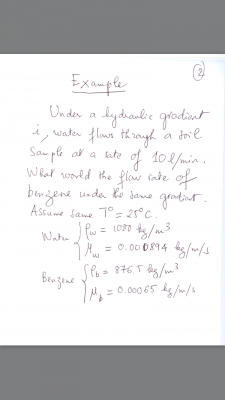 2
Example
Under a hydraulic gradient
i, water flows through a soil
sample at a rate of 10 l/min.
What would the flow rate of
benzene under the same gradient.
Assume same T° = 25°C.
Water { ρw = 1080 kg/m3
μw = 0.000894 kg/m/s
Benzene { ρb = 876.5 kg/m3
μb = 0.00065 kg/m/s